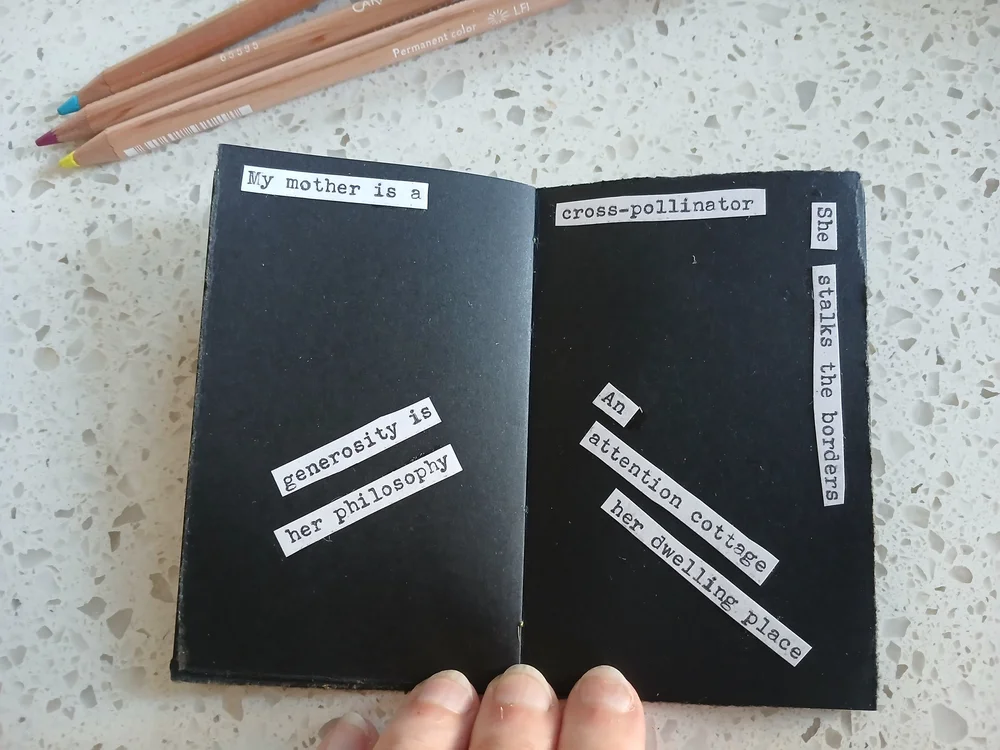 My mother is a
cross-pollinator
She
stalks the borders
generosity is
her philosophy
An
attention cottage
her dwelling place
Permanent color